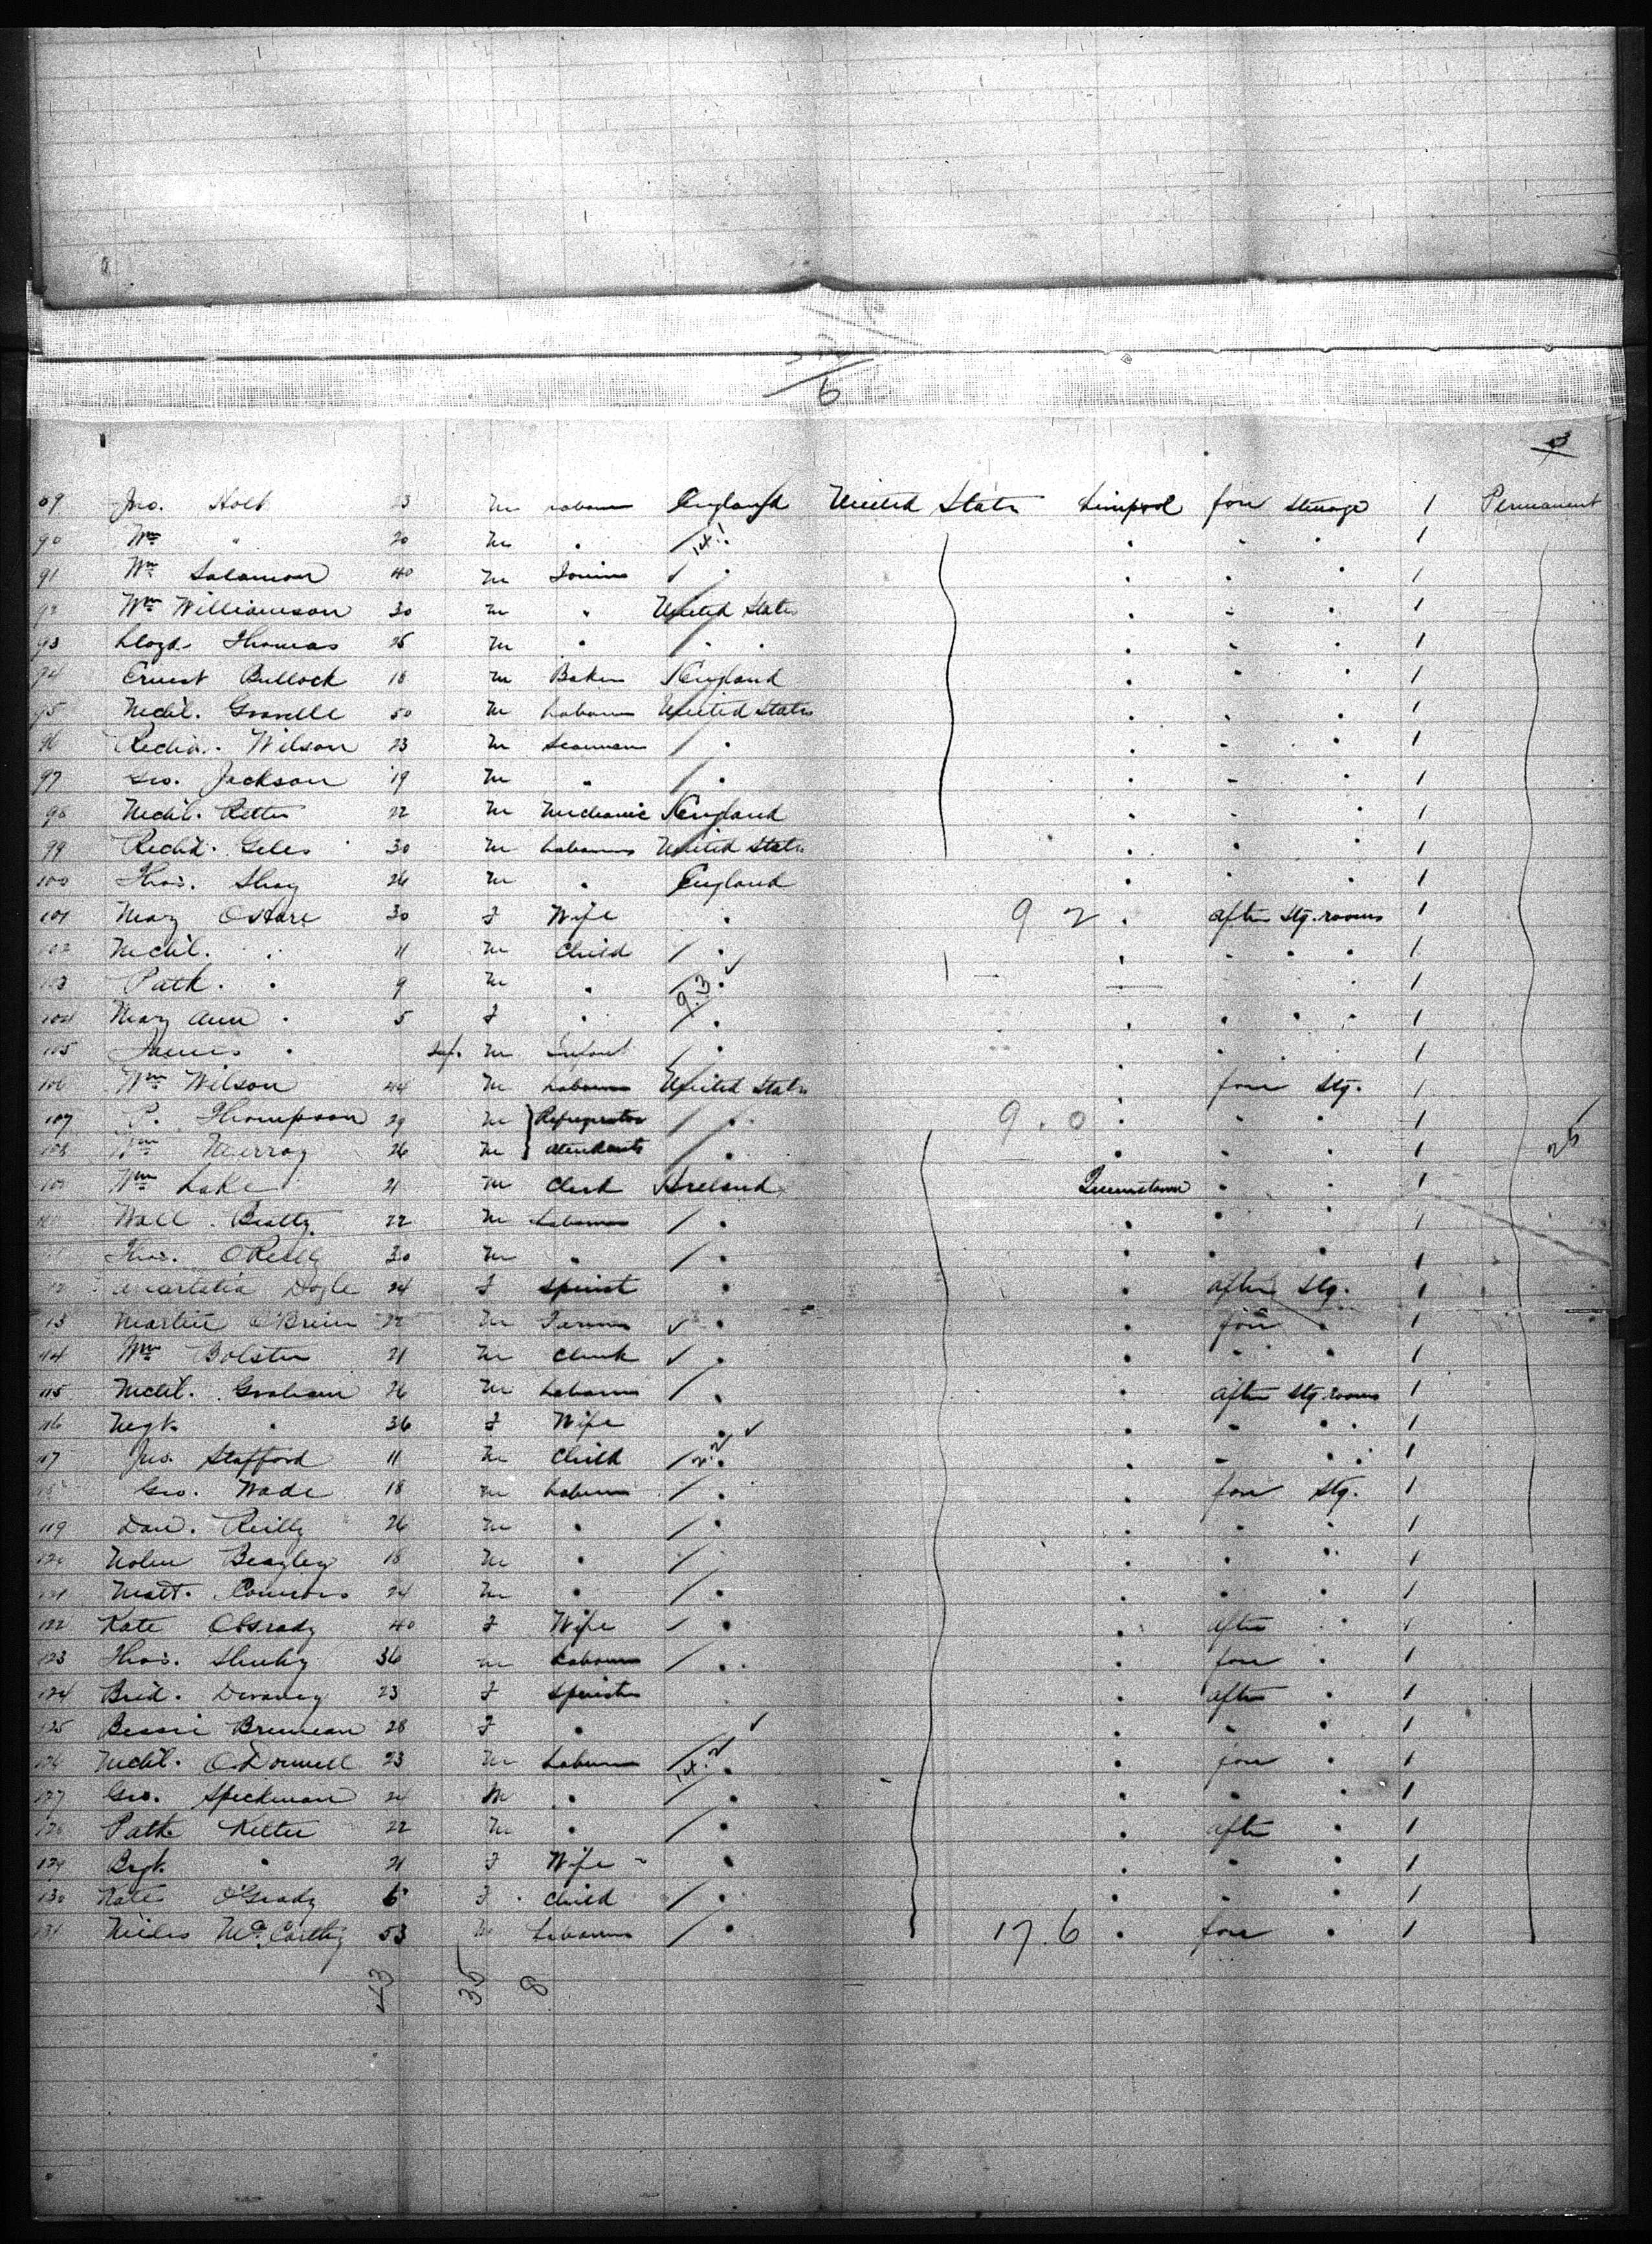 6
Jno. Holt 3 M Labourer England United States Liverpool fore steerage 1 Permanent
90 Wm " 20 M " 1
91 Wm Salamon 40 M " 1
92 Wm Williamson 30 M " United States " 1
93 Lloyd Thomas 25 M " " " 1
94 Ernest Bullock 18 M Baker England " 1
95 Michl. Granelle 50 M Labourer United States " 1
96 Richd. Wilson 23 M Seaman " " 1
97 Geo. Jackson 19 M " " " 1
98 Michl. 22 M Mechanic England " 1
99 Richd. Giles 30 M Labourer United States " 1
100 Thos. Shay 26 M " England " 1
101 Mary O'Hare 30 F Wife " 9 2 " after stg. rooms 1
102 Michl. " 11 M Child " " 1
103 Patk. " 9 M " 9.3 " 1
104 Mary Ann " 5 F " " " 1
105 James " Inf. M Infant " " 1
106 Wm Wilson 44 M Labourer United States " fore stg. 1
107 P. Thompson 29 M Refrigerator " 9.0 " 1
108 Wm Murray 26 M attendants " " 1
Wm Lake 21 M Clerk Ireland Queenstown " 1
Beatty 22 M Labourer " " 1
Thos. O'Reilly 30 M " " " 1
Doyle 24 F Spinst " " after stg. 1
13 Martin O'Brien 22 M Farmer " " fore " 1
114 Wm Bolster 21 M Clerk " " 1
115 Michl. Graham 26 M Labourer " " after stg. rooms 1
116 Mgt. " 36 F Wife " " 1
117 Jno. Stafford 11 M Child " " 1
Geo. Wade 18 M Labourer " " fore stg. 1
119 Dan. Reilly 26 M " " " 1
120 Beazley 18 M " " " 1
121 Matt. Connors 24 M " " " 1
122 Kate O'Grady 40 F Wife " " after " 1
123 Thos. Sheehy 36 M Labourer " " fore " 1
124 Brid. Devaney 23 F Spinster " after " 1
125 Bessie Brennan 28 F " " 1
126 Michl. O'Donnell 23 M Labourer " " fore " 1
127 Geo. Speckman 24 M " " " 1
128 Patk. 22 M " " " after " 1
129 Bgt. " 21 F Wife " " 1
130 Kate O'Grady 6 F Child " " 1
131 McCarthy 53 M Labourer " 17.6 " fore " 1
43 35 8